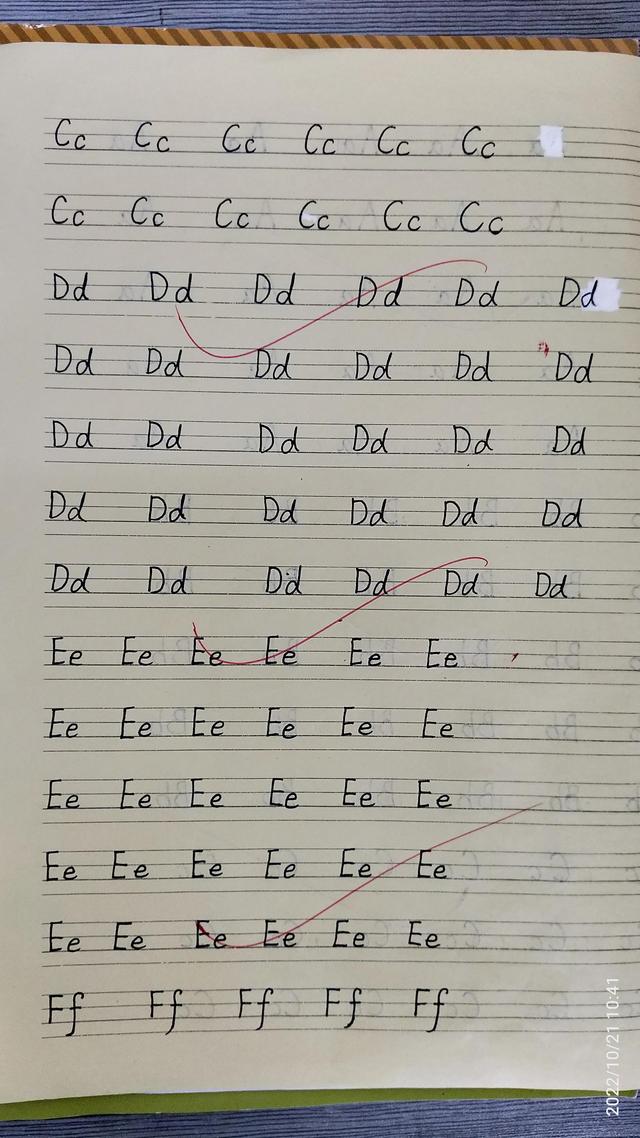 Cc Cc Cc Cc Cc Cc
Cc Cc Cc Cc Cc Cc
Dd Dd Dd Dd Dd Dd
Dd Dd Dd Dd Dd Dd
Dd Dd Dd Dd Dd Dd
Dd Dd Dd Dd Dd Dd
Dd Dd Dd Dd Dd Dd
Ee Ee Ee Ee Ee Ee
Ee Ee Ee Ee Ee Ee
Ee Ee Ee Ee Ee Ee
Ee Ee Ee Ee Ee Ee
Ee Ee Ee Ee Ee Ee
Ff Ff Ff Ff Ff
2022/10/21 10:41